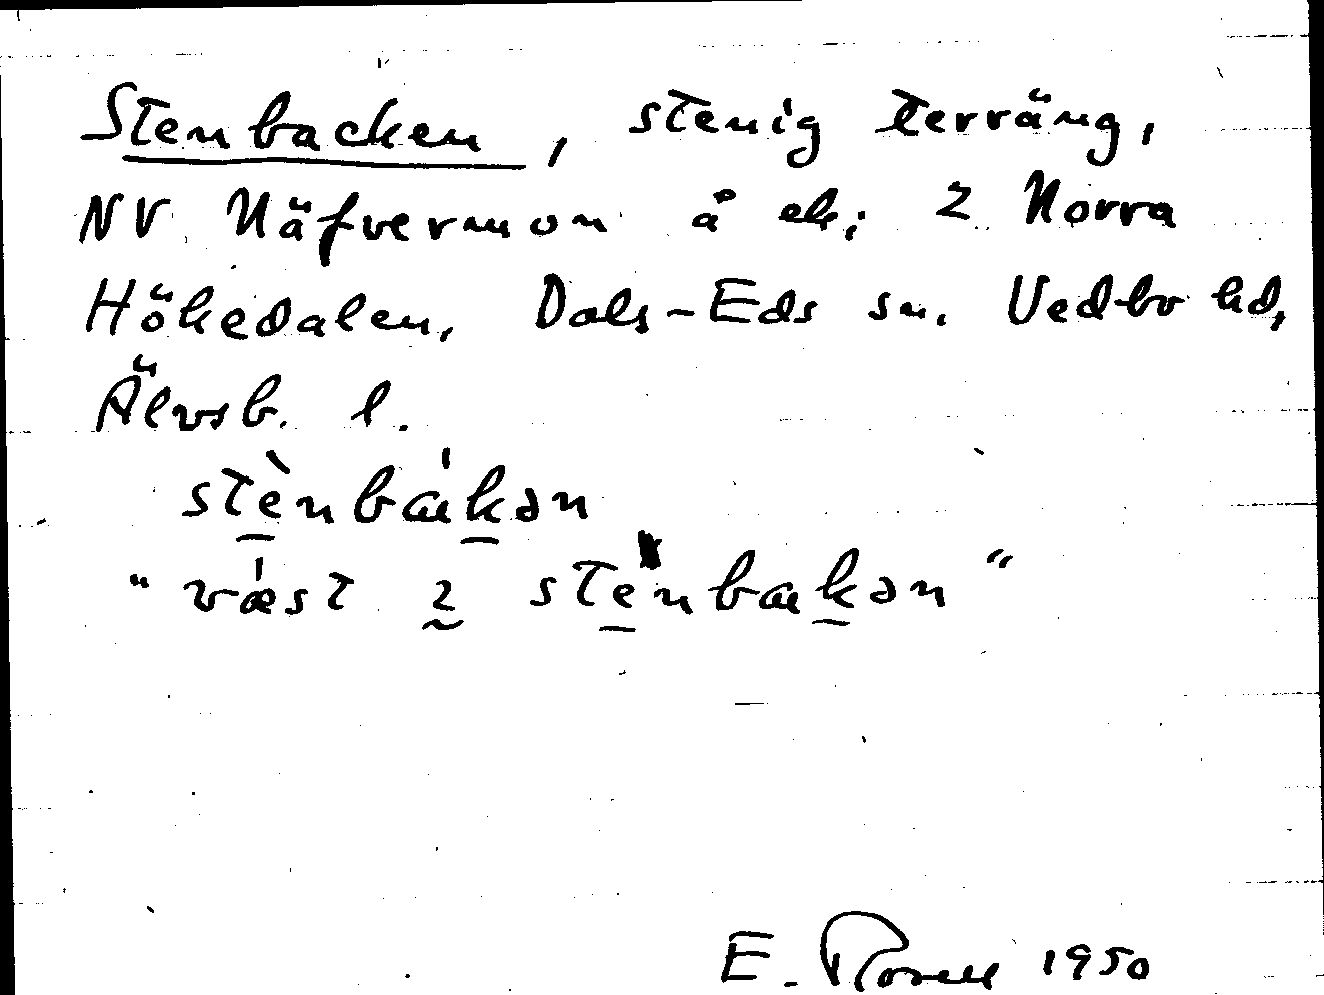 Stenbacken, stenig terräng,
NV Näfvermon å ek; 2 Norra
Hökedalen, Dals-Eds sn. Vedbo hd,
Älvsb. l.
stènbákən
"væ̍st 2 stènbakən"
E. 1950